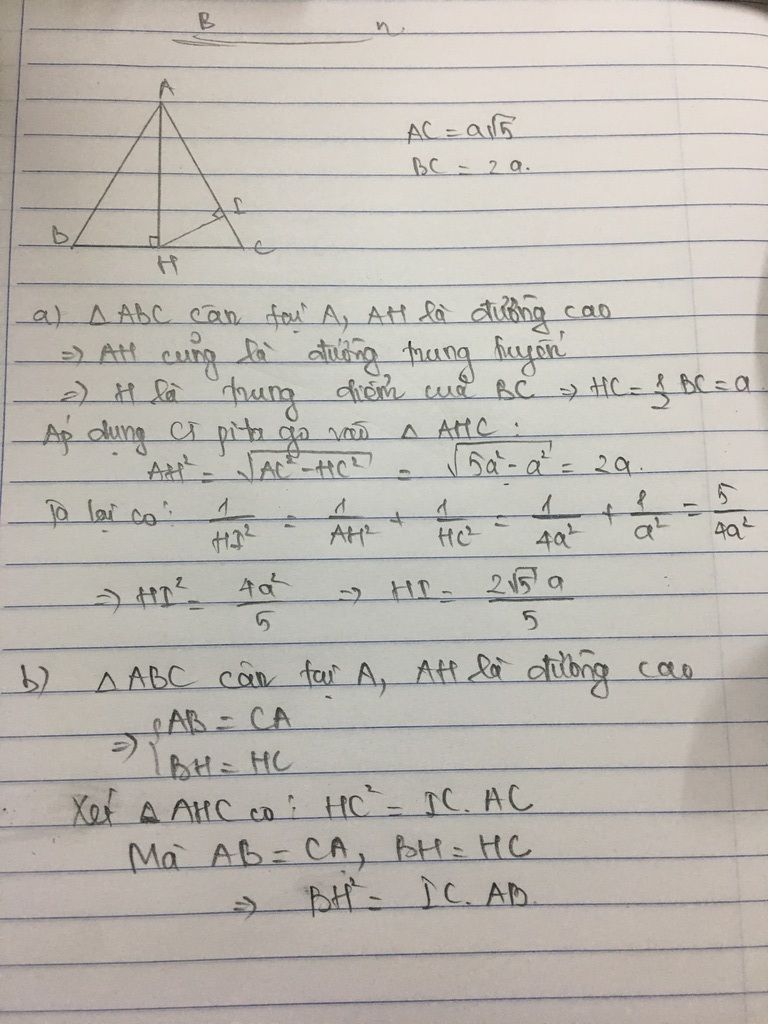 B n.
A
AC = a√5
BC = 2a.
I
B H C
a) △ABC cân tại A, AH là đường cao
=> AH cũng là đường trung tuyến
=> H là trung điểm của BC => HC = 1/2 BC = a
Áp dụng ct pi ta go vào △AHC :
AH² = √(AC² - HC²) = √(5a² - a²) = 2a.
Ta lại có: 1/HI² = 1/AH² + 1/HC² = 1/4a² + 1/a² = 5/4a²
=> HI² = 4a²/5 => HI = 2√5 a/5
b) △ABC cân tại A, AH là đường cao
=> { AB = CA
BH = HC
Xét △AHC có: HC² = IC. AC
Mà AB = CA, BH = HC
=> BH² = IC. AB.